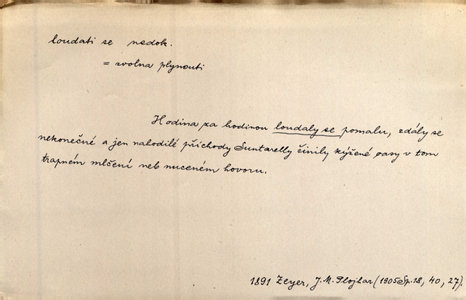 loudati se nedok.
= zvolna plynouti
Hodina za hodinou loudaly se pomalu, zdály se
nekonečné a jen nahodilé příchody Suntarelly činily kýžené pausy v tom
trapném mlčení neb nuceném hovoru.
1891 Zeyer, J. M. Plojhar (1905 Sp. 18, 40, 27).